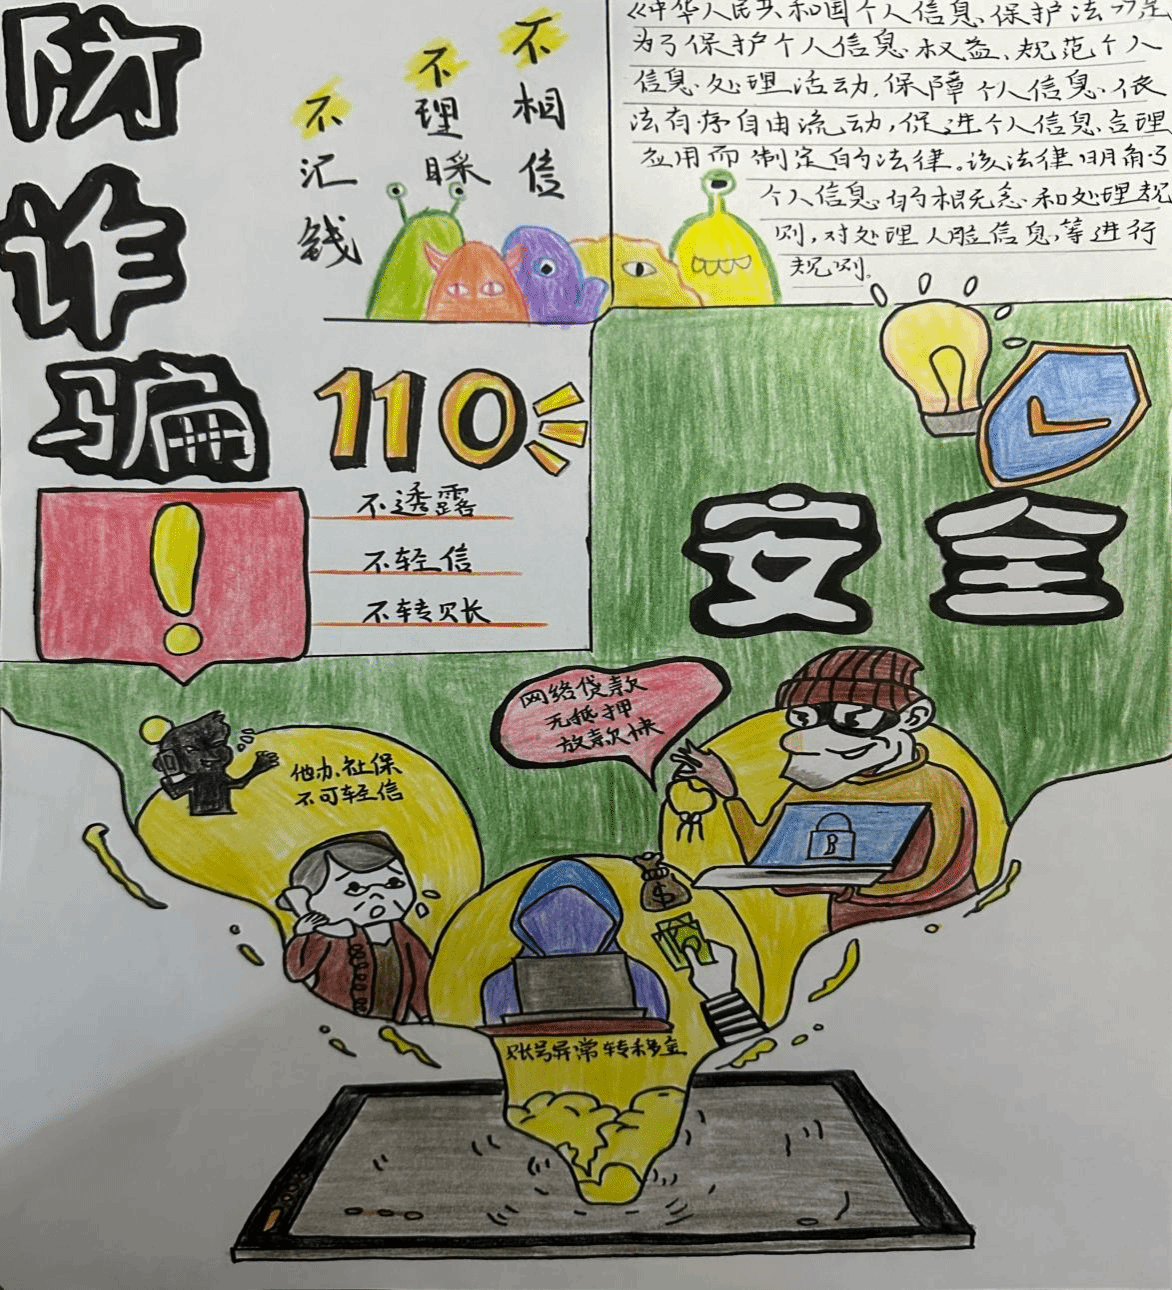 防
诈
骗
不相信
不理睬
不汇钱
《中华人民共和国个人信息保护法》是
为了保护个人信息权益、规范个人
信息处理活动,保障个人信息依
法有序自由流动,促进个人信息合理
应用而制定的法律。该法律明确了
个人信息的相关念和处理规
则,对处理人脸信息,等进行
规则。
110
不透露
不轻信
不转账
!
安全
网络贷款
无抵押
放款快
他办社保
不可轻信
$
B
账号异常转移宝